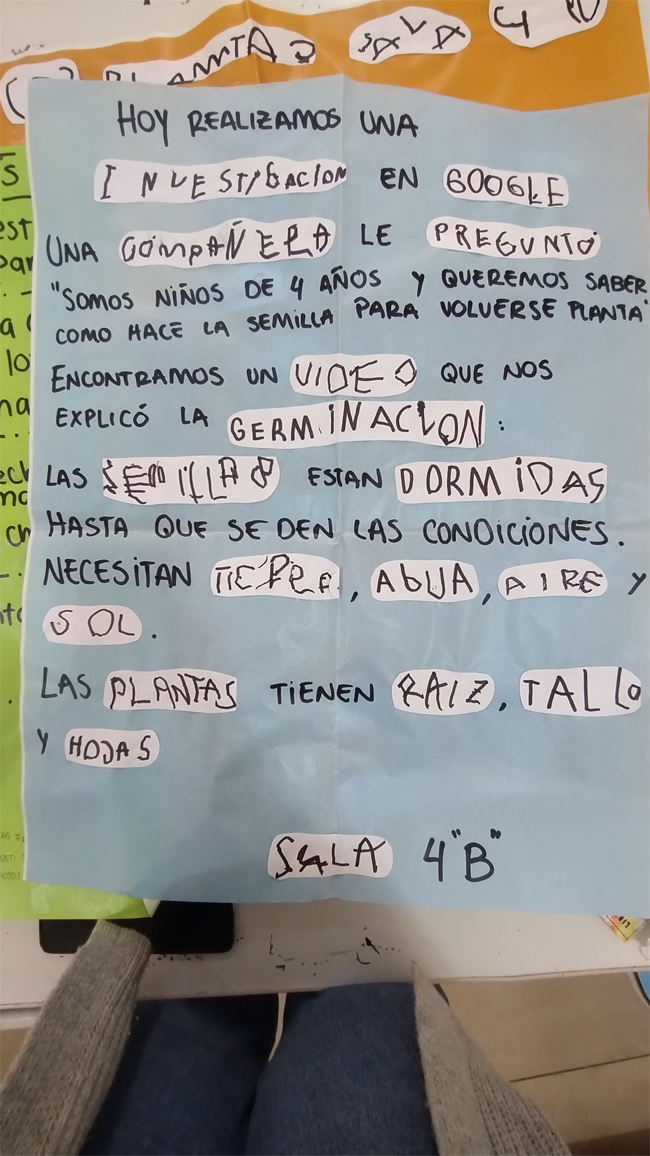 PLANTAS SALA 4
HOY REALIZAMOS UNA
INVESTIGACION EN GOOGLE
UNA COMPAÑERA LE PREGUNTO
"SOMOS NIÑOS DE 4 AÑOS Y QUEREMOS SABER
COMO HACE LA SEMILLA PARA VOLVERSE PLANTA"
ENCONTRAMOS UN VIDEO QUE NOS
EXPLICÓ LA GERMINACION:
LAS SEMILLAS ESTAN DORMIDAS
HASTA QUE SE DEN LAS CONDICIONES.
NECESITAN TIERRA, AGUA, AIRE Y
SOL.
LAS PLANTAS TIENEN RAIZ, TALLO
Y HOJAS
SALA 4"B"